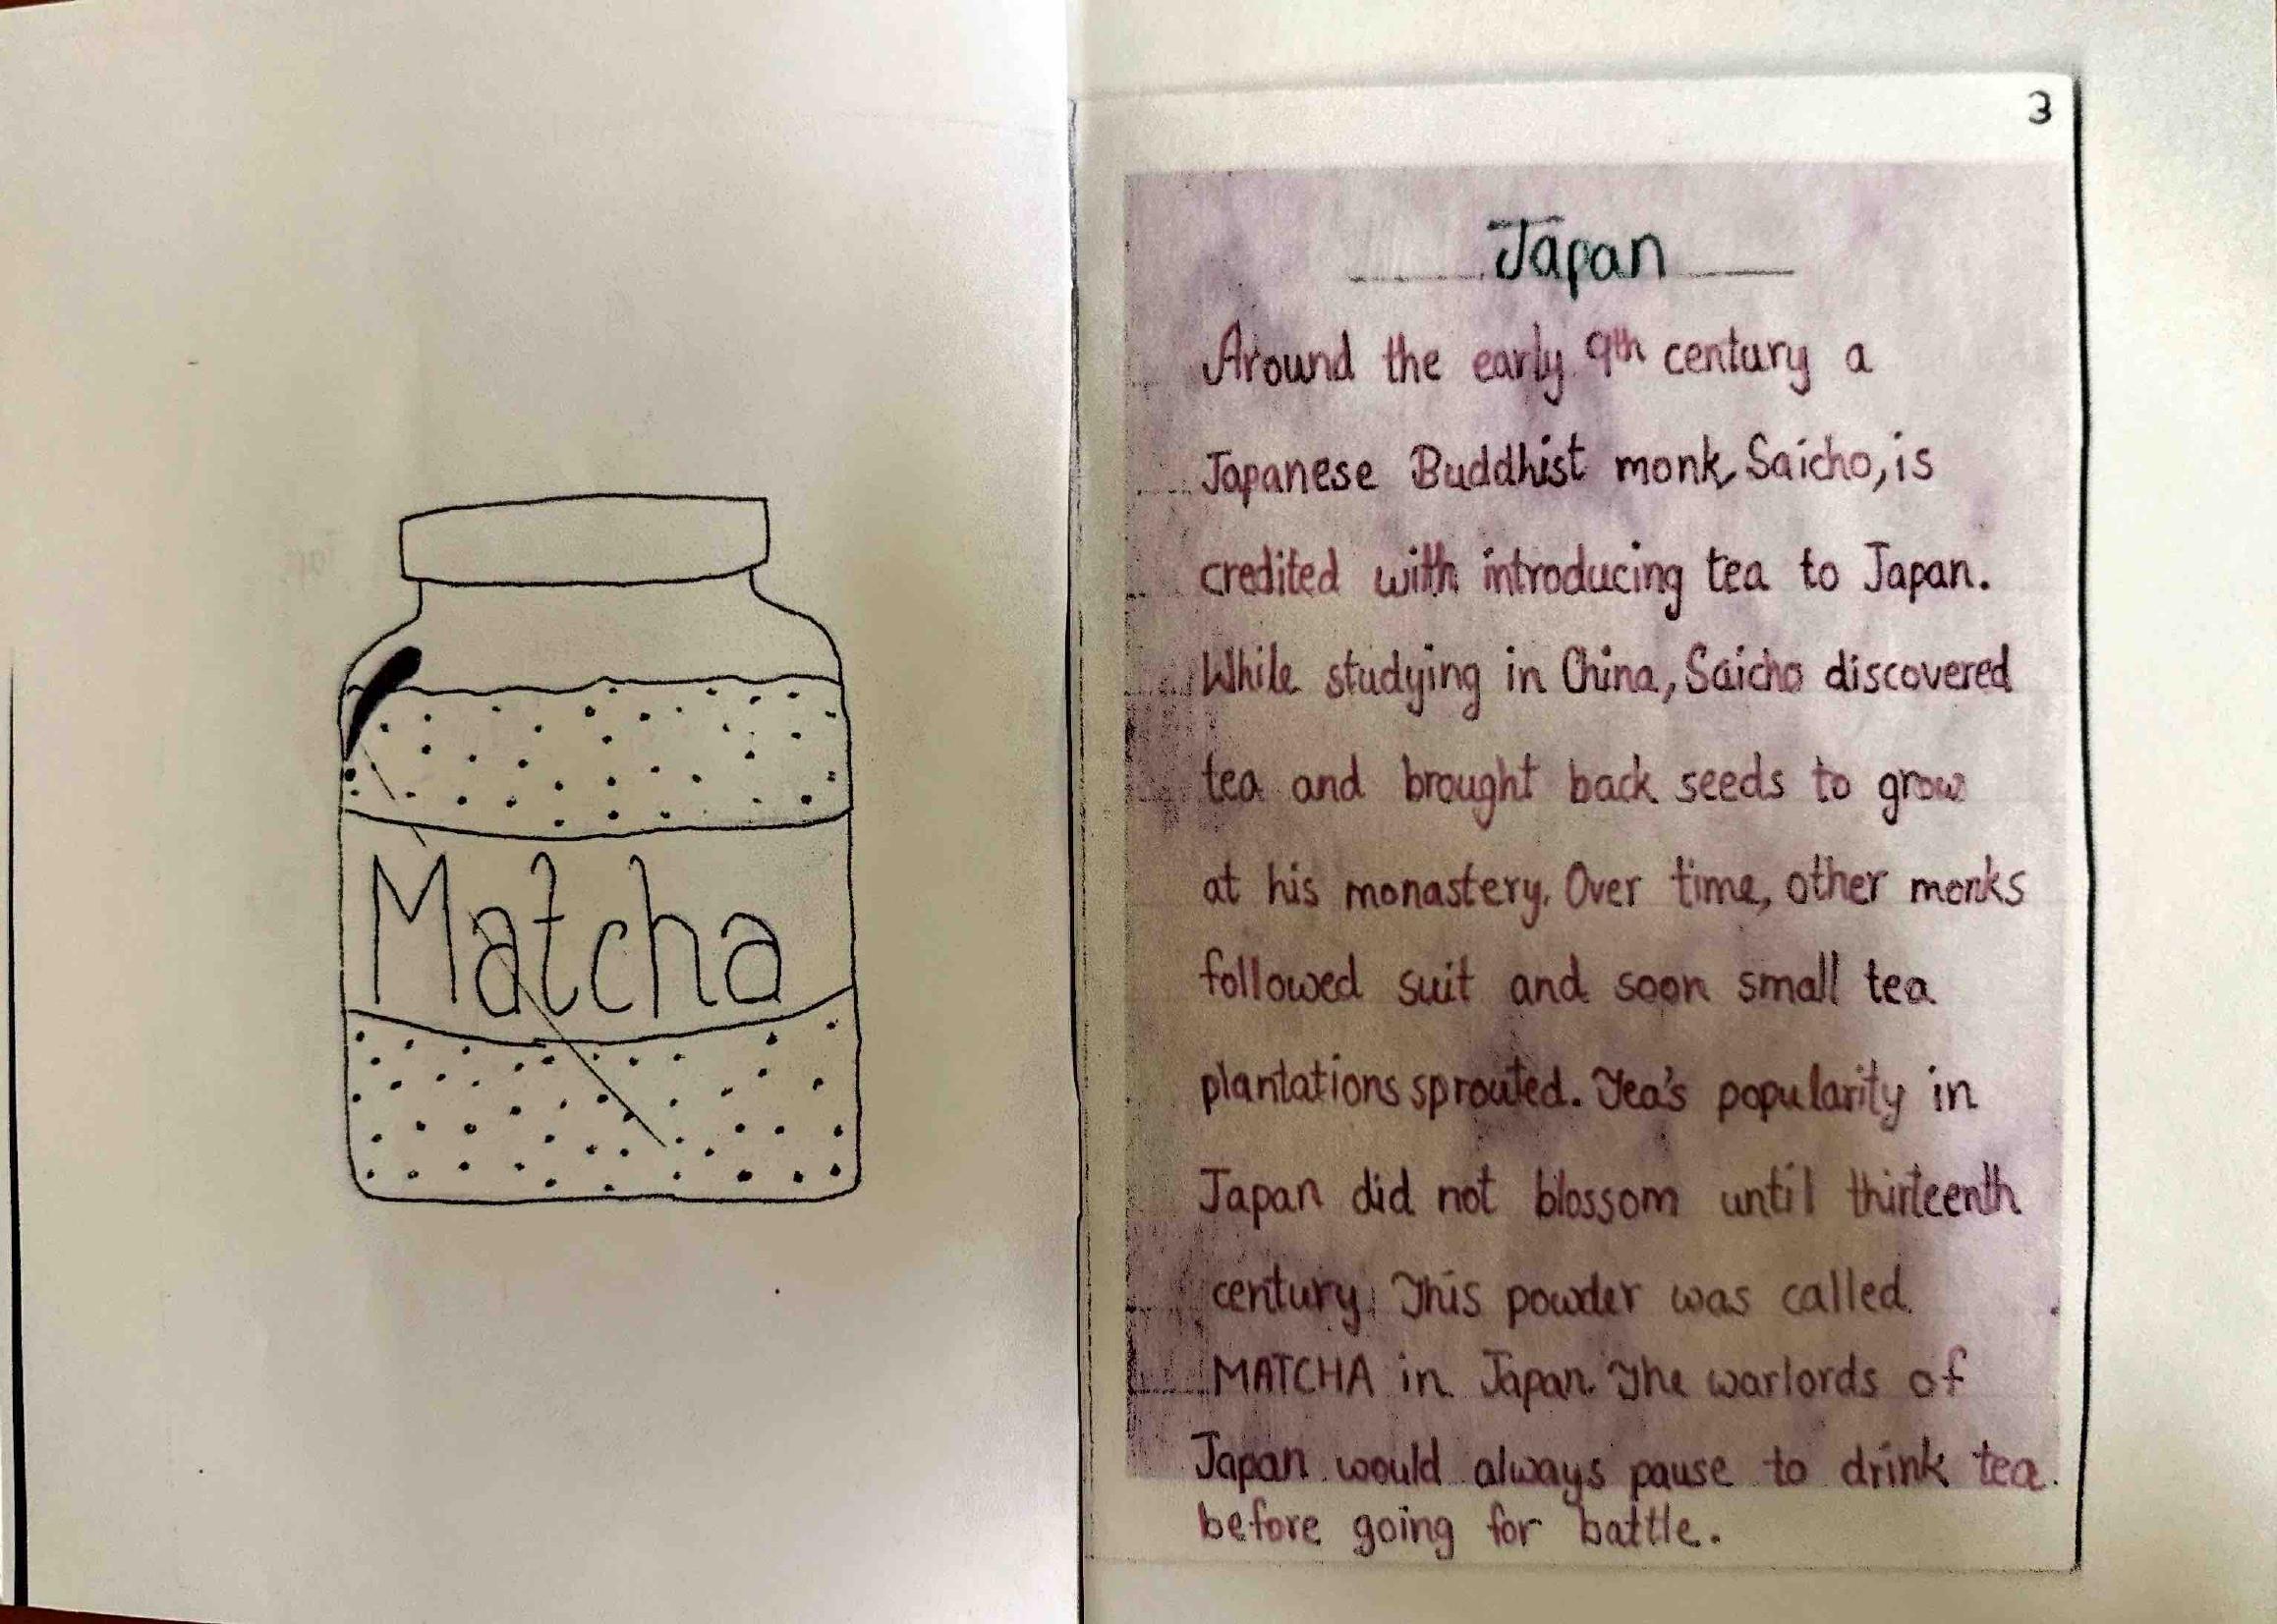 Matcha
3
Japan
Around the early 9th century a
Japanese Buddhist monk, Saicho, is
credited with introducing tea to Japan.
While studying in China, Saicho discovered
tea and brought back seeds to grow
at his monastery. Over time, other monks
followed suit and soon small tea
plantations sprouted. Tea's popularity in
Japan did not blossom until thirteenth
century. This powder was called
MATCHA in Japan. The warlords of
Japan would always pause to drink tea
before going for battle.